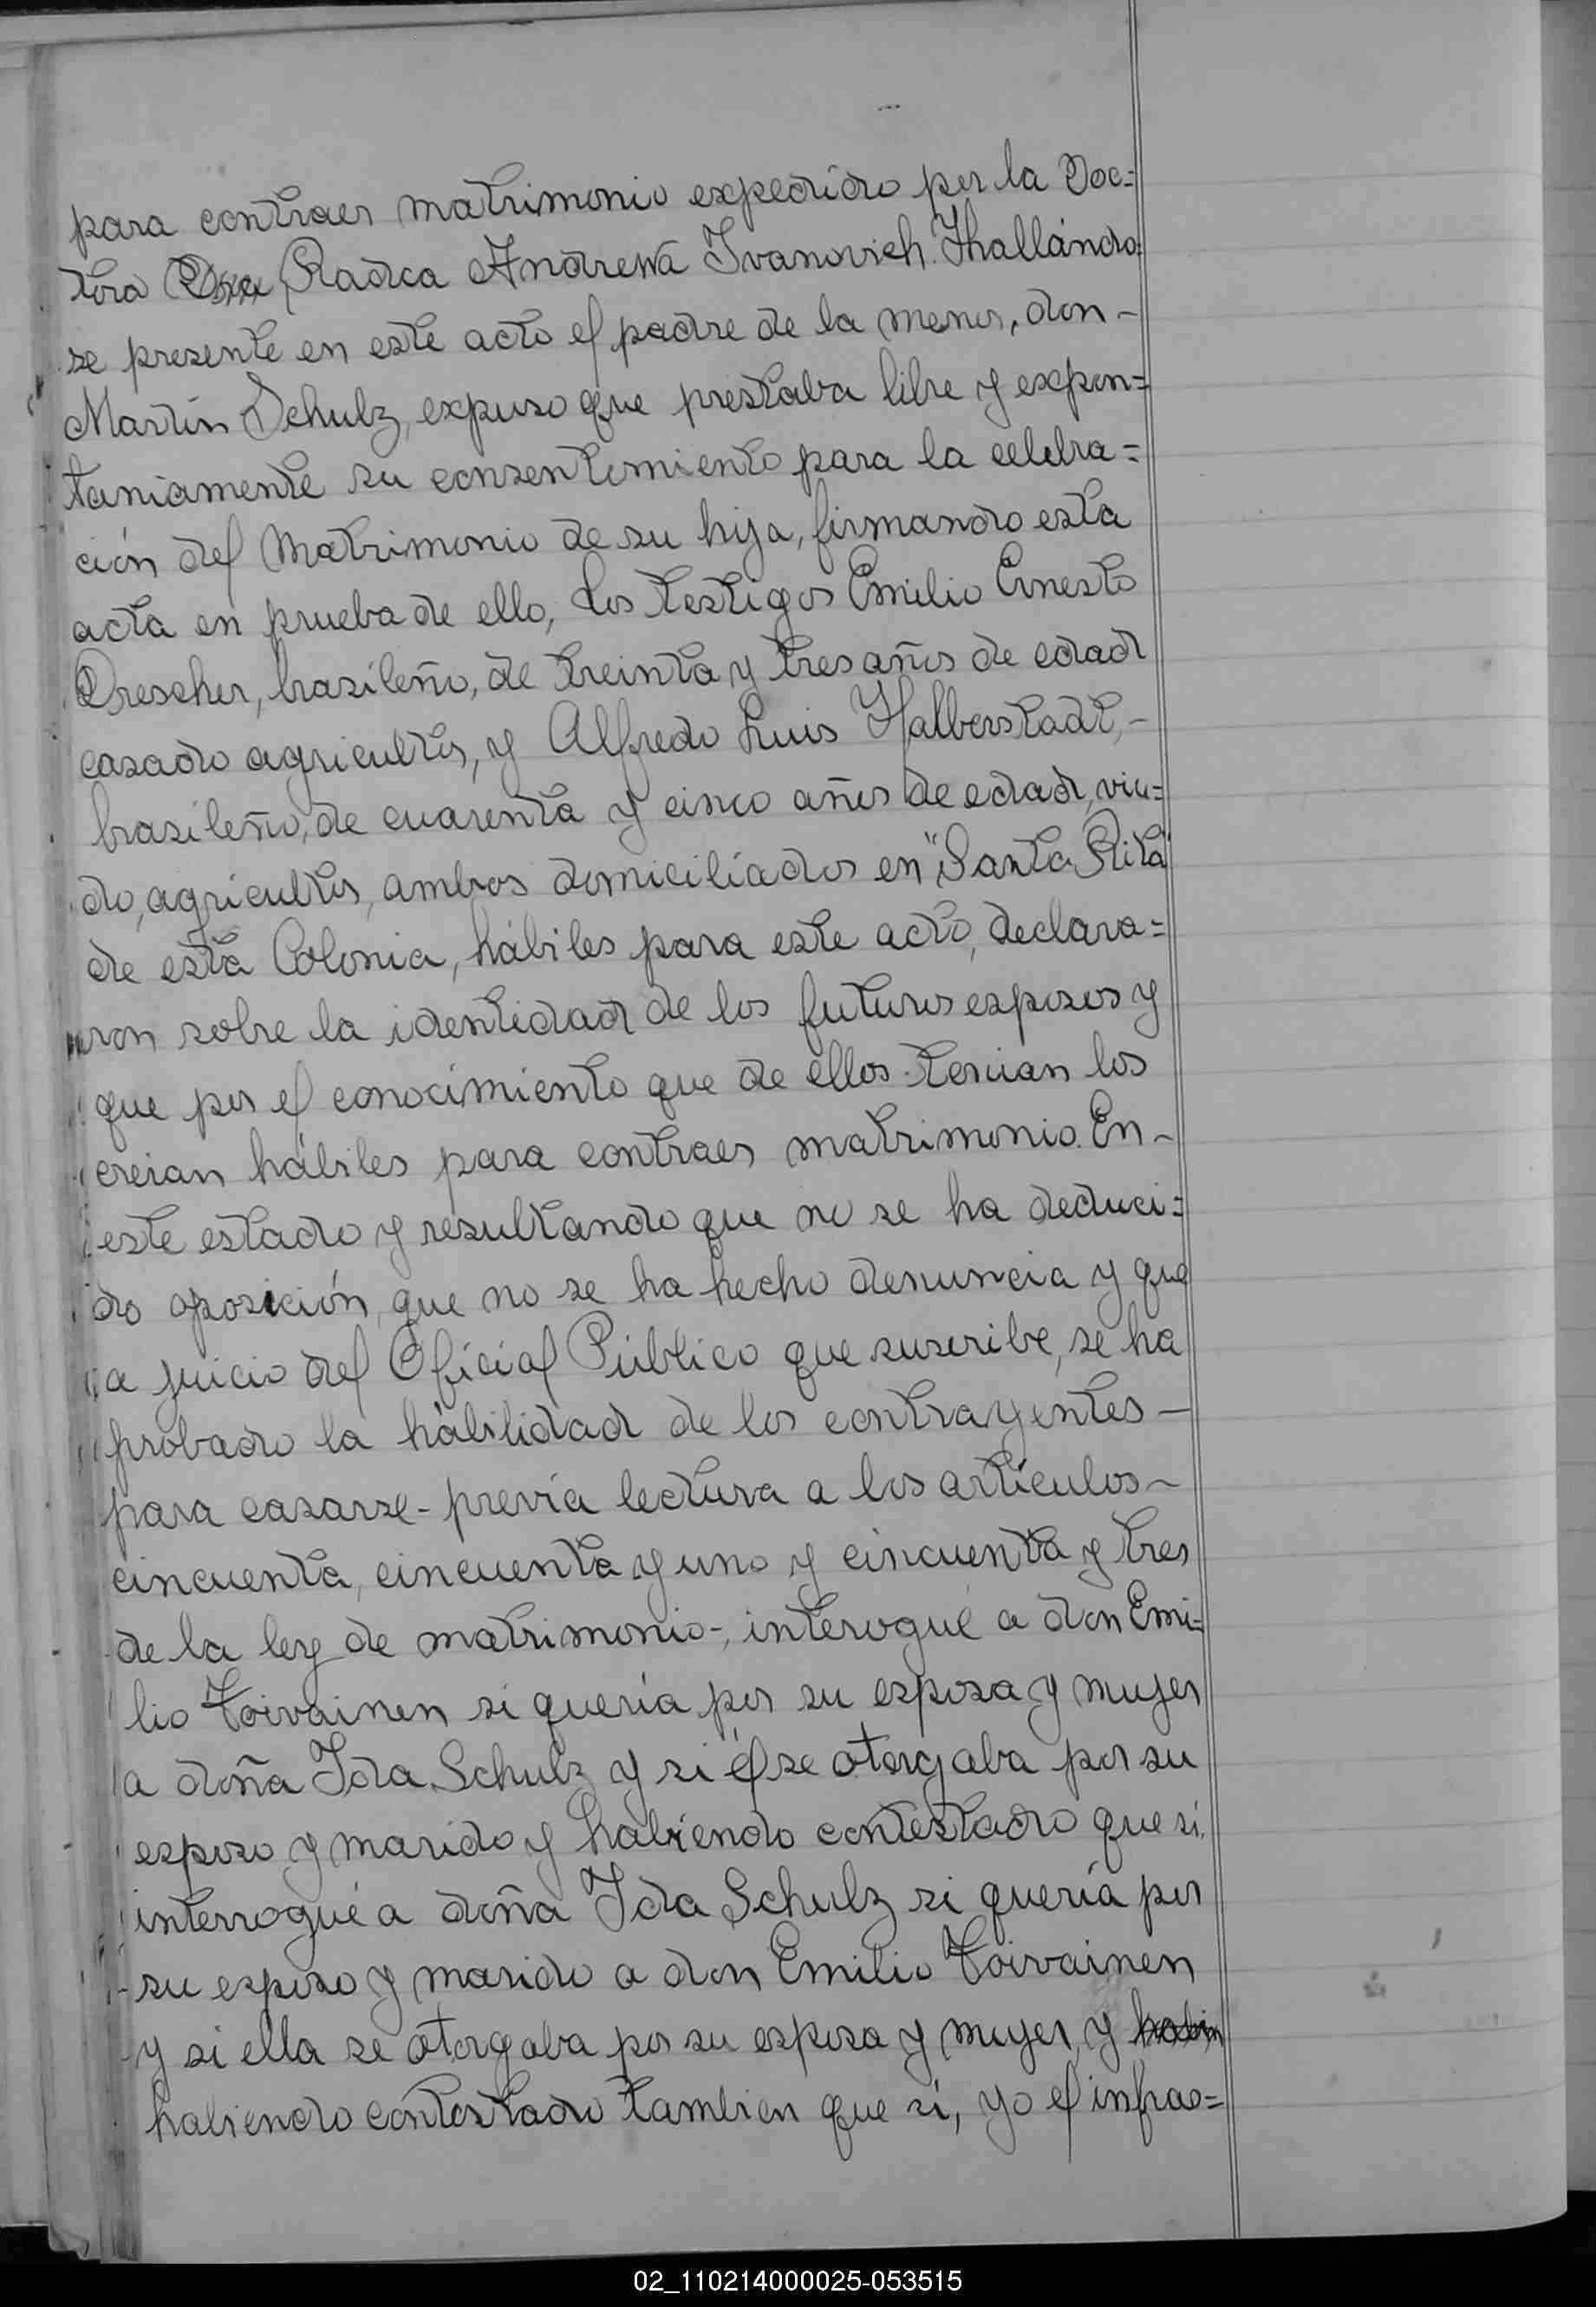 para contraer matrimonio expedido por la Doc=
tora Radca Andrewa Ivanovich. Hallándo=
se presente en este acto el padre de la menor, don-
Martín Schulz, expuso que prestaba libre y expon=
taniamente su consentimiento para la celebra=
ción del Matrimonio de su hija, firmando esta
acta en prueba de ello, Los testigos Emilio Ernesto
Drescher, brasileño, de treinta y tres años de edad
casado agricultor, y Alfredo Luis Halberstadt,-
brasileño, de cuarenta y cinco años de edad, viu=
do, agricultor, ambos domiciliados en "Santa Rita"
de esta Colonia, hábiles para este acto, declara=
ron sobre la identidad de los futuros esposos y
que por el conocimiento que de ellos tenian los
creian hábiles para contraer matrimonio. En-
este estado y resultando que no se ha deduci=
do oposición, que no se ha hecho denuncia y que
a juicio del Oficial Público que suscribe, se ha
probado la habilidad de los contrayentes-
para casarse-previa lectura a los artículos-
cincuenta, cincuenta y uno y cincuenta y tres
de la ley de matrimonio-, interogué a don Emi=
lio Toivainen si quería por su esposa y mujer
a doña Ida Schulz y si él se otorgaba por su
esposo y marido y habiendo contestado que sí.
interrogué a doña Ida Schulz si quería por
su esposo y marido a don Emilio Toivainen
y si ella se otorgaba por su esposa y mujer, y habien
habiendo contestado tambien que sí, yo el infras=
02_110214000025-053515